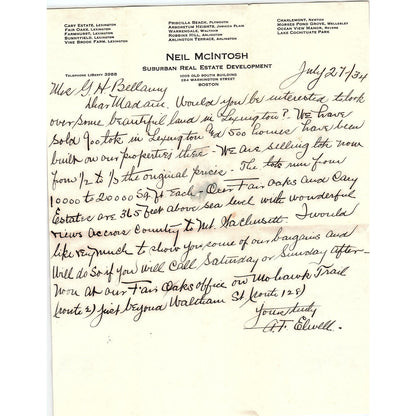 CARY ESTATE, LEXINGTON
FAIR OAKS, LEXINGTON
FARMHURST, LEXINGTON
SUNNYHURST, LEXINGTON
VINE BROOK FARM, LEXINGTON
PRISCILLA BEACH, PLYMOUTH
ARBORETUM HEIGHTS, JAMAICA PLAIN
WARRENDALE, WALTHAM
ROBBINS HILL, ARLINGTON
ARLINGTON TERRACE, ARLINGTON
CHARLEMONT, NEWTON
MORSES POND GROVE, WELLESLEY
OCEAN MANOR, REVERE
LAKE COCHITUATE PARK
NEIL MCINTOSH
SUBURBAN REAL ESTATE DEVELOPMENT
TELEPHONE LIBERTY 3988
1005 OLD SOUTH BUILDING
294 WASHINGTON STREET
BOSTON
July 27/34
Mrs G H Bellamy
Dear Madam. Would you be interested to look
over some beautiful land in Lexington? We have
sold 900 lots in Lexington and 500 homes have been
built on our properties there - We are selling lots now
from 1/2 to 1/3 the original prices - The lots run from
10000 to 20000 sq ft each - Our Fair Oaks and Cary
Estate are 365 feet above sea level with wonderful
views across country to Mt. Wachusett. I would
like very much to show you some of our bargains and
will do so if you will call Saturday or Sunday after-
noon at our Fair Oaks office on Mohawk Trail
(route 2) just beyond Waltham St (route 128)
Yours truly
A.F. Elwell.